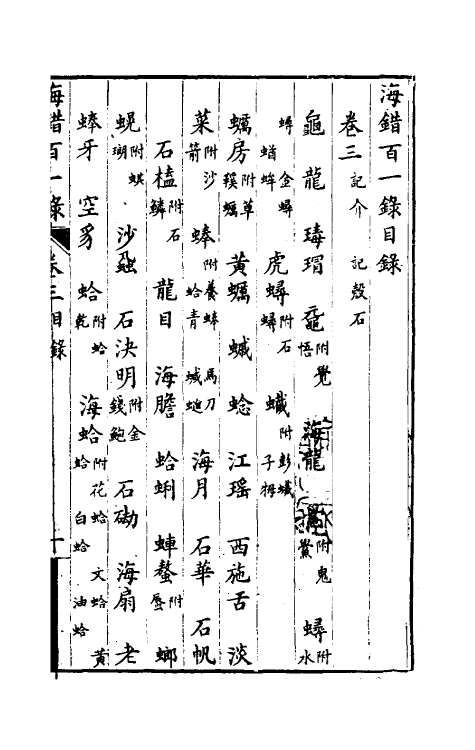 海錯百一錄目錄
卷三 記介 記殼石
龜 龍 瑇瑁 黿 附覺悟 海龍 附鬼鱟 蟳 附水
蟳 蝤蛑 金蟳 虎蟳 附石蟳 蠘 附彭蠘 子拇
蠣房 附草鞵蠣 黃蠣 蝛 蛤 江瑤 西施舌 淡
菜 附沙箭 蜯 附養蜯 蛤青 馬刀 蝛𧏮 海月 石華 石帆
石榼 附石鱗 龍目 海膽 蛤蜊 蟶螯 附蜃 螂
蜆 附蜞瑚 沙蝨 石決明 附金錢鮑 石砌 海扇 老
蜯牙 空豸 蛤 附蛤乾 海蛤 附花蛤 白蛤 文蛤 油蛤 黃
海錯百一錄 卷三目錄 十